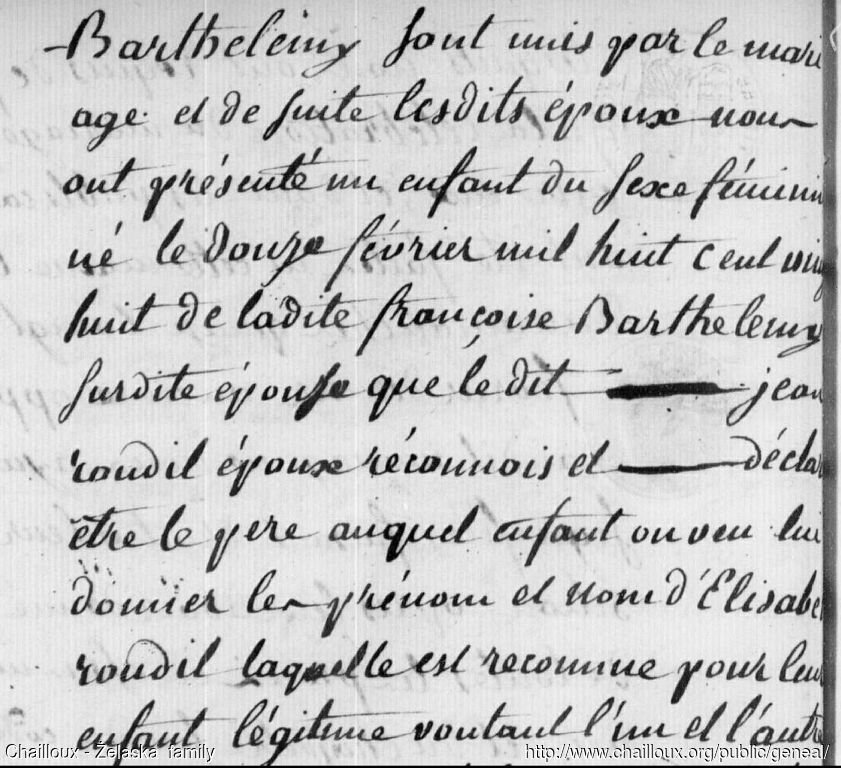 Barthelemy sont unis par le mari
age et de suite lesdits époux nous
ont présenté un enfant du sexe féminin
né le douze février mil huit cent ving
huit de ladite françoise Barthelemy
surdite épouse que le dit jean
roudil époux réconnois et déclar
être le pere auquel enfant on veu lui
donner les prénom et nom d'Elisabe
roudil laquelle est reconnue pour leur
enfant légitime voulant l'un et l'autre
Chailloux - Żelaska family
http://www.chailloux.org/public/geneal/